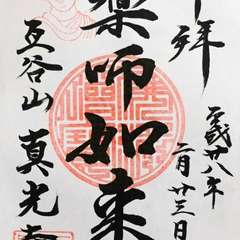 奉拝
平成廿八年
二月廿三日
薬師如来
瓦谷山 真光寺